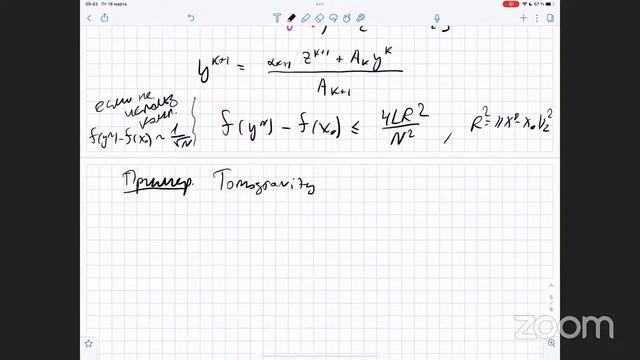 09:43 Пт 18 марта
67 %
y^{k+1} = \frac{α_{k+1} z^{k+1} + A_k y^k}{A_{k+1}}
если не
использ
f(y^N)-f(x) ~ \frac{1}{\sqrt{N}}
f(y^N) - f(x_*) ≤ \frac{4LR^2}{N^2} , R^2 = ||x^0 - x_*||_2^2
Пример. Tomogravity
5
6
zoom